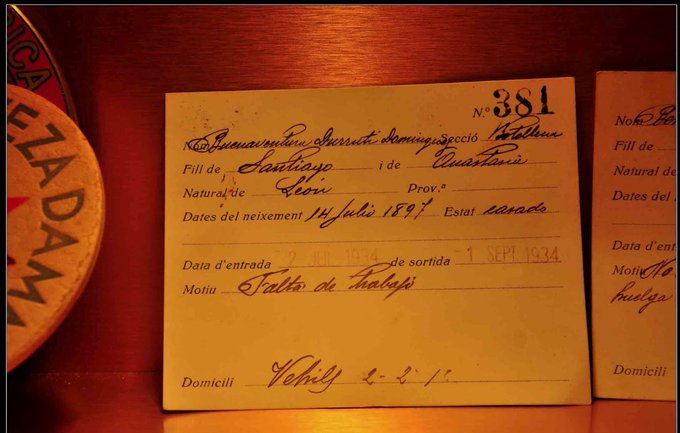 DICA
EZA DAMM
N.º 381
Nom Buenaventura Durruti Domingue Secció Botelleria
Fill de Santiago i de Anastasia
Natural de León Prov.ª
Dates del neixement 14 Julio 1897 Estat casado
Data d'entrada 2 JUL 1934 de sortida -1 SEPT. 1934
Motiu Falta de Trabajo
Domicili Vehils 2-2º 1ª
Nom
Fill de
Natural de
Dates del
Data d'entr
Motiu
huelga
Domicili